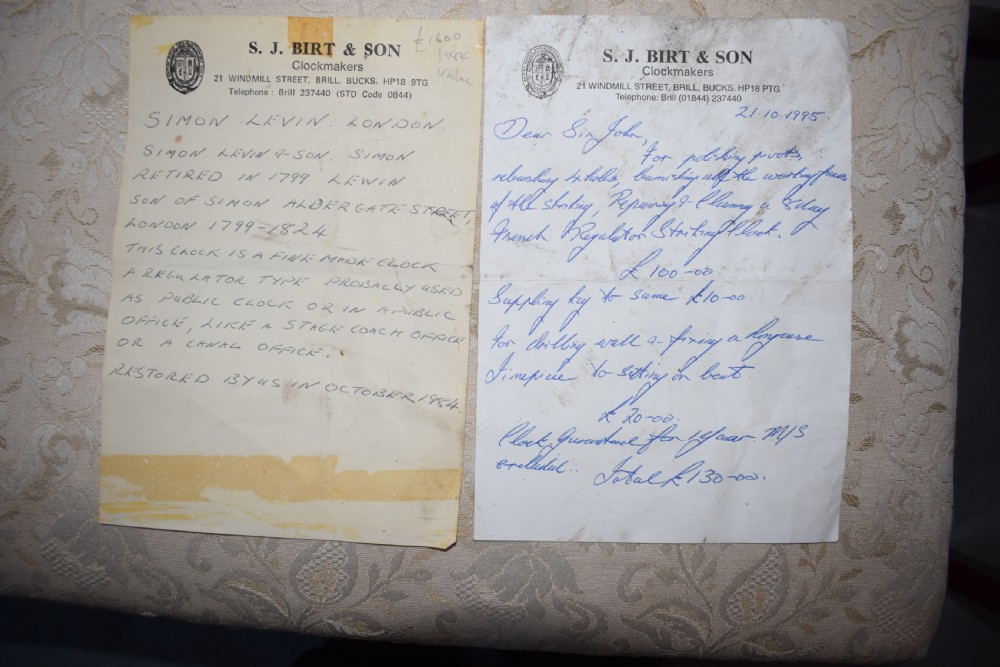 S. J. BIRT & SON
Clockmakers
21 WINDMILL STREET, BRILL, BUCKS. HP18 9TG
Telephone : Brill 237440 (STD Code 0844)
£1600
1994
Value
SIMON LEVIN. LONDON.
SIMON LEVIN & SON. SIMON
RETIRED IN 1799 LEWIN
SON OF SIMON ALDERGATE STREET,
LONDON 1799-1824
THIS CLOCK IS A FINE MADE CLOCK
A REGULATOR TYPE PROBALLY USED
AS PUBLIC CLOCK OR IN A PUBLIC
OFFICE, LIKE A STAGE COACH OFFICE
OR A CANAL OFFICE.
RESTORED BY US IN OCTOBER 1984.
S. J. BIRT & SON
Clockmakers
21 WINDMILL STREET, BRILL, BUCKS. HP18 PTG
Telephone: Brill (01844) 237440
21.10.1995.
Dear Sir John,
For polishing pivots,
rebushing 4 holes, burnishing all the working faces
of the striking, Repairing & Cleaning a 8day
French Regulator Striking Clock.
£100-00
Supplying key to same £10-00.
For drilling wall & fixing a
Timepiece to setting in beat
£20-00.
Clock Guarantee for 1 Year M/S
excluded.. Total £130-00.